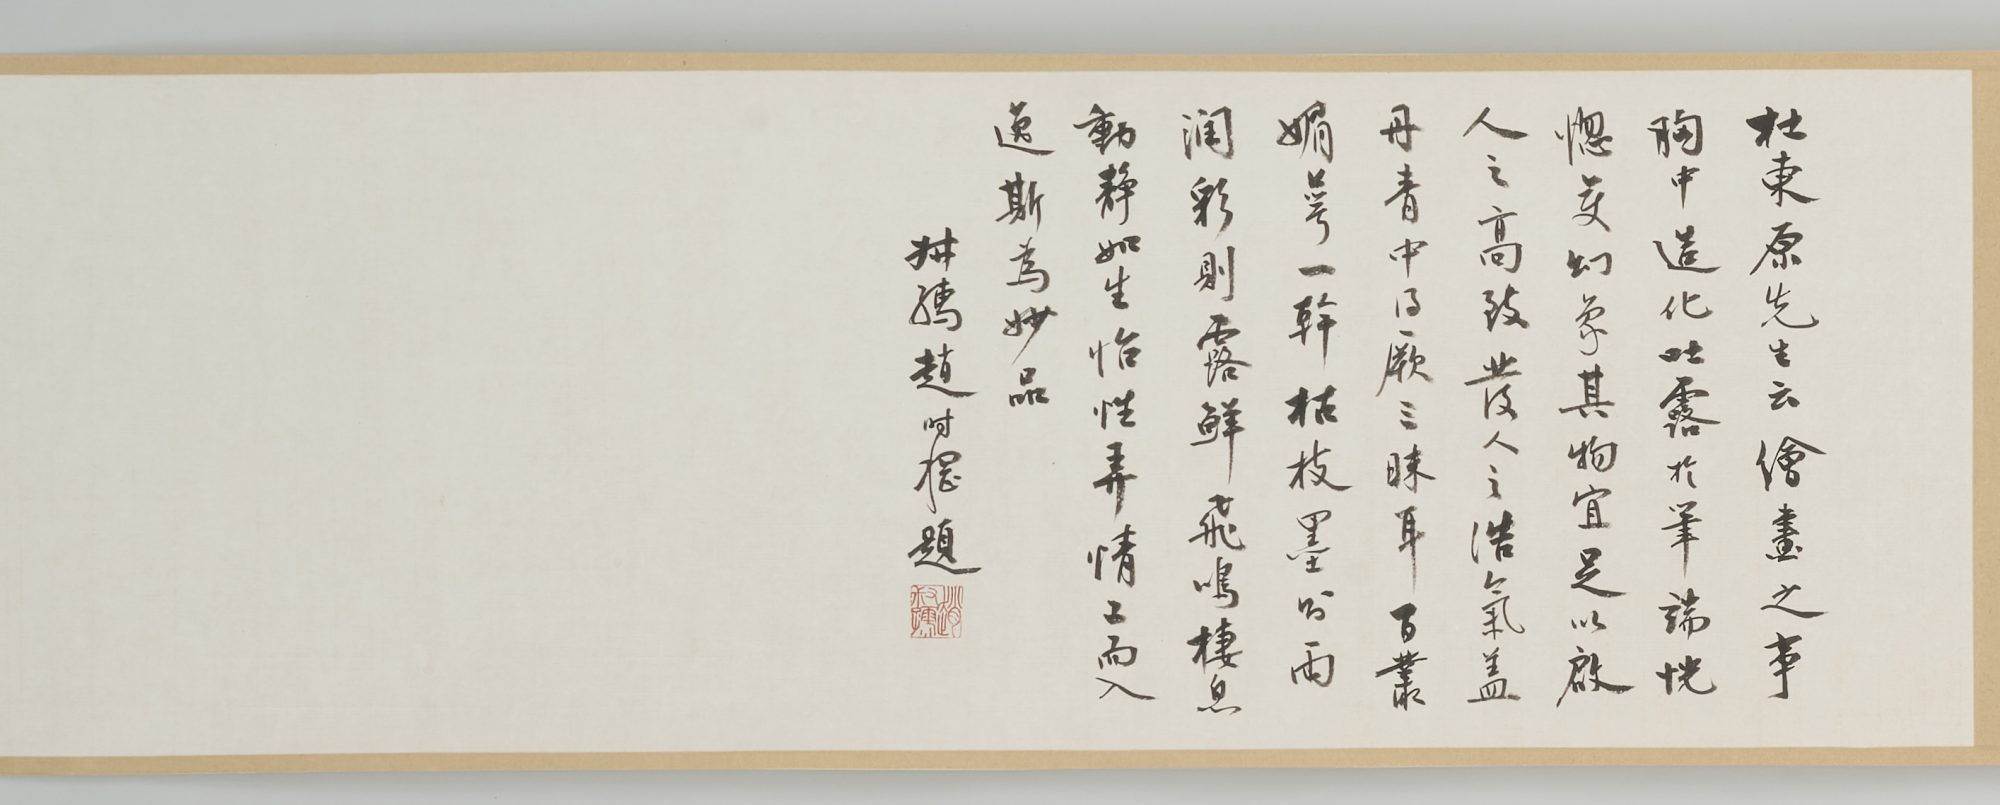 杜東原先生云繪畫之事
胸中造化吐露於筆端恍
惚變幻象其物宜足以啟
人之高致發人之浩氣蓋
丹青中得厥三昧耳百叢
媚萼一幹枯枝墨則雨
润彩則露鮮飛鳴棲息
動静如生怡性弄情工而入
逸斯為妙品
叔孺趙時棡題